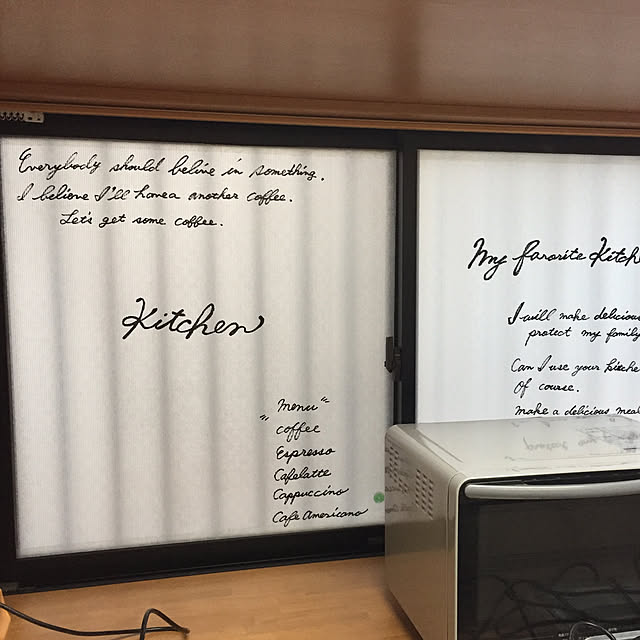 Everybody should belive in something.
I believe I'll havea another coffee.
Let's get some coffee.
Kitchen
"Menu"
coffee
Espresso
Cafelatte
Cappuccino
Cafe Americano
My favorite Kitche
I will make delicious
protect my family
Can I use your kitche
Of course.
make a delicious meal